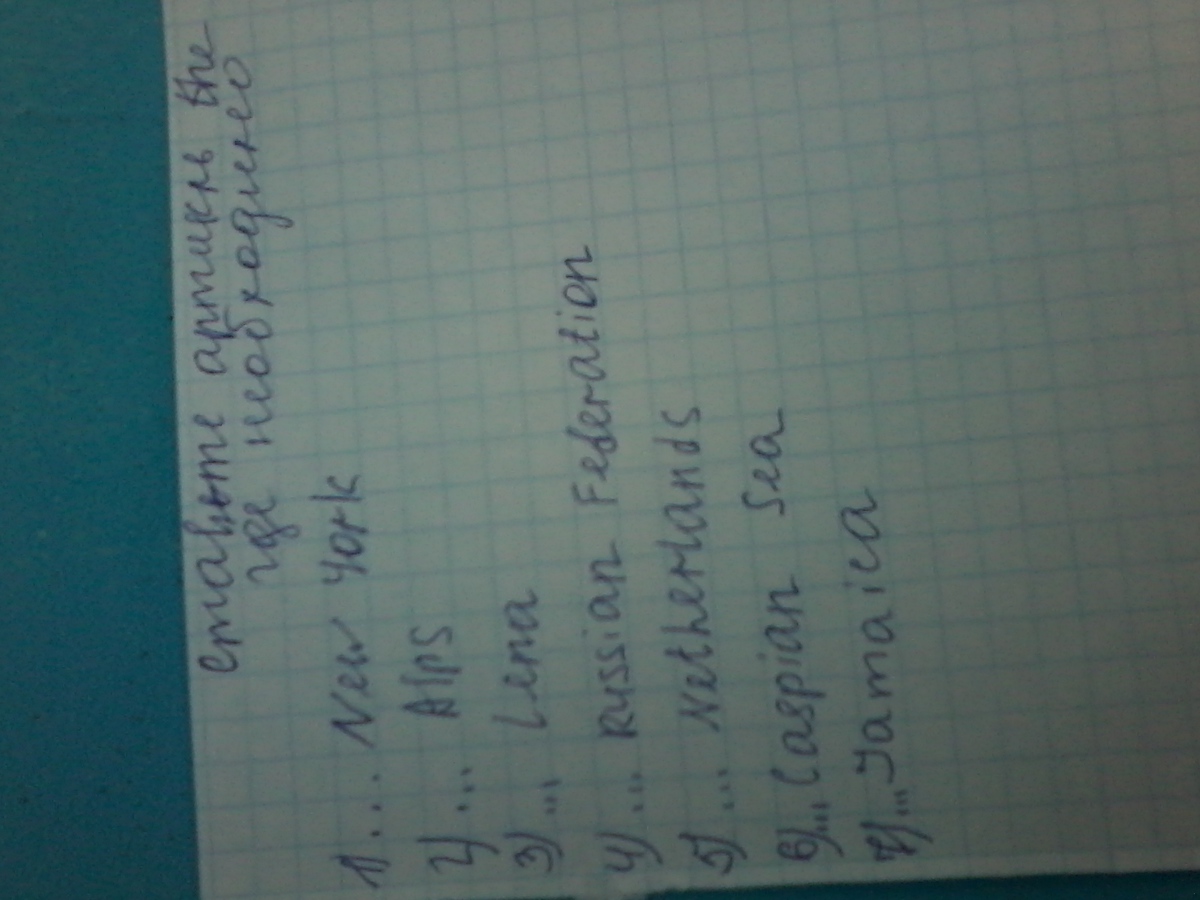 ставьте артикль the
где необходимо
1)... New York
2)... Alps
3)... Lena
4)... Russian Federation
5)... Netherlands
6)... Caspian Sea
7)... Jamaica